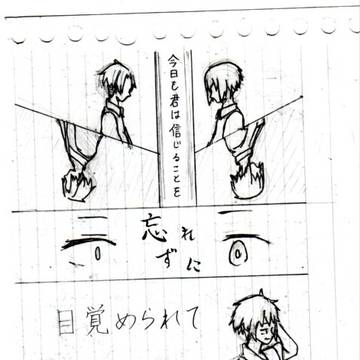 今日も君は信じることを
忘れ
ずに
目覚められて